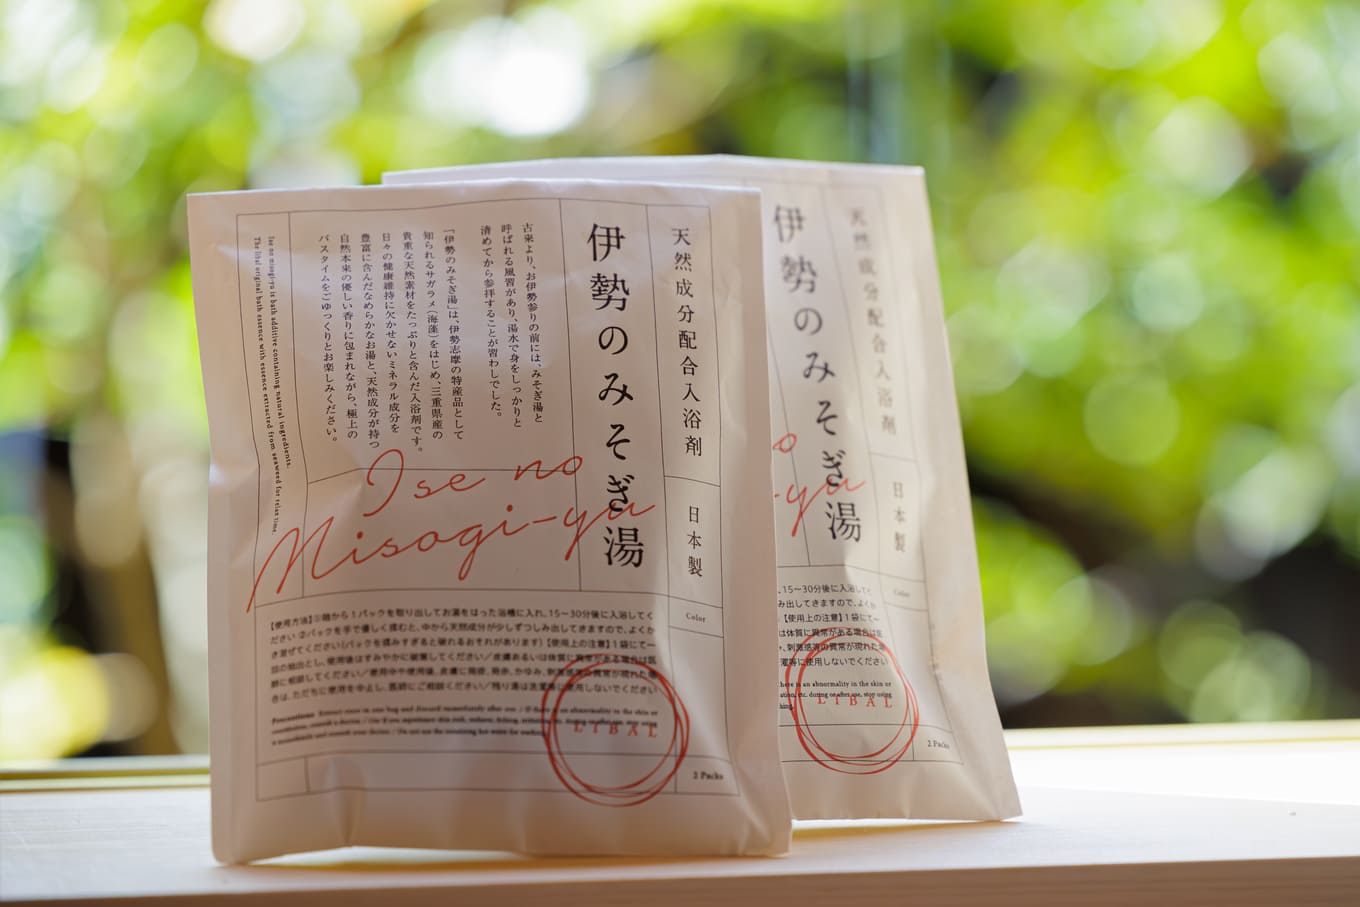 天然成分配合入浴剤
日本製
Color
伊勢のみそぎ湯
古来より、お伊勢参りの前には、みそぎ湯と
呼ばれる風習があり、湯水で身をしっかりと
清めてから参拝することが習わしでした。
「伊勢のみそぎ湯」は、伊勢志摩の特産品として
知られるサガラメ(海藻)をはじめ、三重県産の
貴重な天然素材をたっぷりと含んだ入浴剤です。
日々の健康維持に欠かせないミネラル成分を
豊富に含んだなめらかなお湯と、天然成分が持つ
自然本来の優しい香りに包まれながら、極上の
バスタイムをごゆっくりとお楽しみください。
Ise no misogi-yu is bath additive containing natural ingredients.
The libal original bath essence with essence extracted from seaweed for relax time.
Ise no
Misogi-yu
【使用方法】①箱から1パックを取り出してお湯をはった浴槽に入れ、15〜30分後に入浴してく
ださい ②パックを手で優しく揉むと、中から天然成分が少しずつしみ出してきますので、よくか
き混ぜてください(パックを揉みすぎると破れるおそれがあります)【使用上の注意】1袋にて一
回の抽出とし、使用後はすみやかに破棄してください／皮膚あるいは体質に異常がある場合は医
師に相談してください／使用中や使用後、皮膚に発疹、発赤、かゆみ、刺激感等の異常が現れた場
合は、ただちに使用を中止し、医師にご相談ください／残り湯は洗濯等に使用しないでください
Precautions
LIBAL
2 Packs
天然成分配合入浴剤
日本製
Color
伊勢のみそぎ湯
o
-yu
、15〜30分後に入浴してく
み出してきますので、よくか
【使用上の注意】1袋にて一
は体質に異常がある場合は医
、刺激感等の異常が現れた場
濯等に使用しないでください
here is an abnormality in the skin or
etc. during or after use, stop using
LIBAL
2 Packs